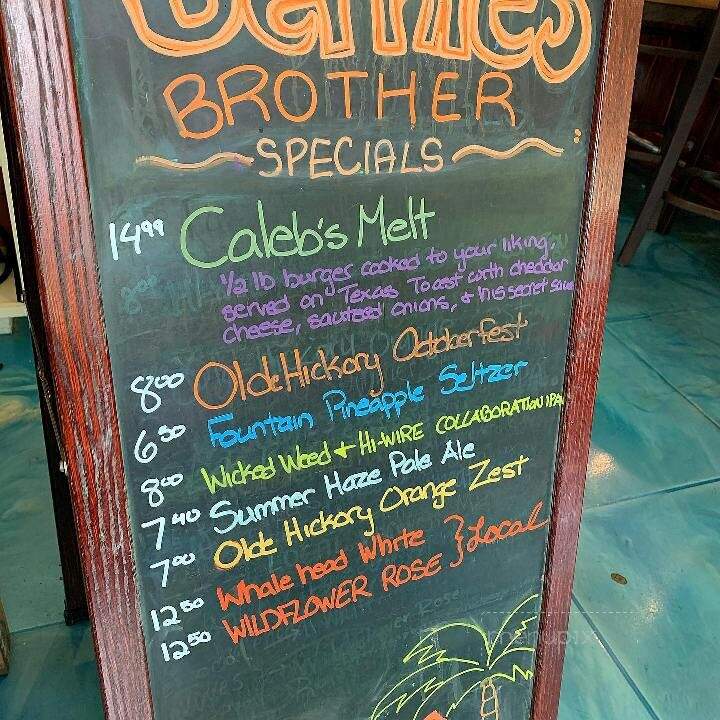 BROTHER
SPECIALS
14.99 Caleb's Melt
1/2 lb burger cooked to your liking,
served on Texas Toast with cheddar
cheese, sauteed onions, & his secret sauce
8.00 Olde Hickory Octoberfest
6.50 Fountain Pineapple Seltzer
8.00 Wicked Weed + Hi-WIRE COLLABORATION IPA
7.40 Summer Haze Pale Ale
7.00 Olde Hickory Orange Zest
12.50 Whale head White } Local
12.50 WILDFLOWER ROSE